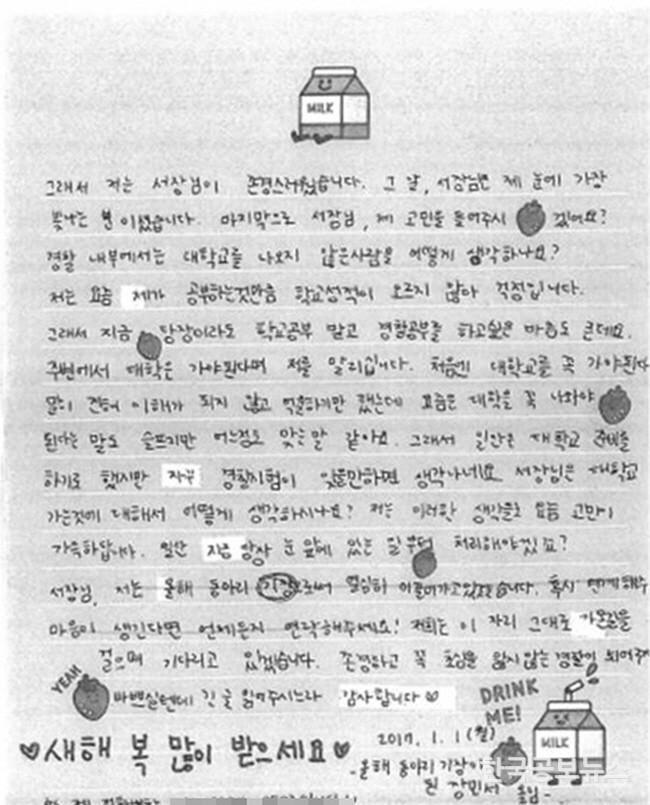 MILK
그래서 저는 서장님이 존경스러웠습니다. 그 날, 서장님은 제 눈에 가장
빛나는 분이셨습니다. 마지막으로 서장님, 제 고민을 들어주시 겠어요?
경찰 내부에서는 대학교를 나오지 않은사람을 어떻게 생각하나요?
저는 요즘 제가 공부하는것만큼 학교성적이 오르지 않아 걱정입니다.
그래서 지금 당장이라도 학교공부 말고 경찰공부를 하고싶은 마음도 큰데요.
주변에서 대학은 가야된다며 저를 말리십니다. 처음엔 대학교를 꼭 가야된다
말이 전혀 이해가 되지 않고 억울하기만 했는데 요즘은 대학을 꼭 나와야
된다는 말도 슬프지만 어느정도 맞는말 같아요. 그래서 일단은 대학교 준비를
하기로 했지만 자꾸 경찰시험이 잊을만하면 생각나네요. 서장님은 대학교
가는것에 대해서 어떻게 생각하시나요? 저는 이러한 생각들로 요즘 고민이
가득하답니다. 일단 지금 당장 눈 앞에 있는 일부터 처리해야겠죠?
서장님, 저는 올해 동아리 기장으로써 열심히 이끌어가고있겠습니다. 혹시 연계해주
마음이 생긴다면 언제든지 연락해주세요! 저희는 이 자리 그대로
걸으며 기다리고 있겠습니다. 존경하고 꼭 초심을 잃지 않는 경찰이 되어주
YEAH
바쁘실텐데 긴 글 읽어주시느라 감사합니다♡
DRINK ME!
MILK
♡새해 복 많이 받으세요♡
1. 1 (월)
올해 동아리 기장이
된 강민서 올림
한국공보뉴스